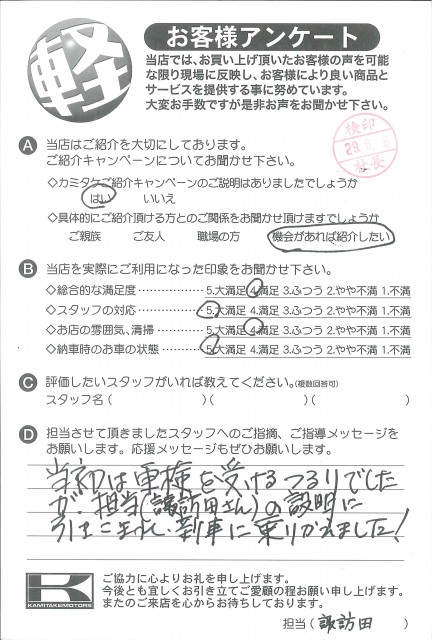 軽
お客様アンケート
当店では、お買い上げ頂いたお客様の声を可能
な限り現場に反映し、お客様により良い商品と
サービスを提供する事に努めています。
大変お手数ですが是非お声をお聞かせ下さい。
検印
29.6.6
社長
A 当店はご紹介を大切にしております。
ご紹介キャンペーンについてお聞かせ下さい。
◇カミタケご紹介キャンペーンのご説明はありましたでしょうか
はい いいえ
◇具体的にご紹介頂ける方とのご関係をお聞かせ頂けますでしょうか
ご親族 ご友人 職場の方 機会があれば紹介したい
B 当店を実際にご利用になった印象をお聞かせ下さい。
◇総合的な満足度 5.大満足 4.満足 3.ふつう 2.やや不満 1.不満
◇スタッフの対応 5.大満足 4.満足 3.ふつう 2.やや不満 1.不満
◇お店の雰囲気、清掃 5.大満足 4.満足 3.ふつう 2.やや不満 1.不満
◇納車時のお車の状態 5.大満足 4.満足 3.ふつう 2.やや不満 1.不満
C 評価したいスタッフがいれば教えてください。(複数回答可)
スタッフ名( )( )( )
D 担当させて頂きましたスタッフへのご指摘、ご指導メッセージを
お願いします。応援メッセージもぜひお願いします。
当初は車検を受けるつもりでした
が、担当(諏訪田さん)の説明に
引きこまれ、新車に乗りかえました!
K
KAMITAKEMOTORS
ご協力に心よりお礼を申し上げます。
今後とも宜しくお引き立てご愛顧の程お願い申し上げます。
またのご来店を心からお待ちしております。
担当(諏訪田 )